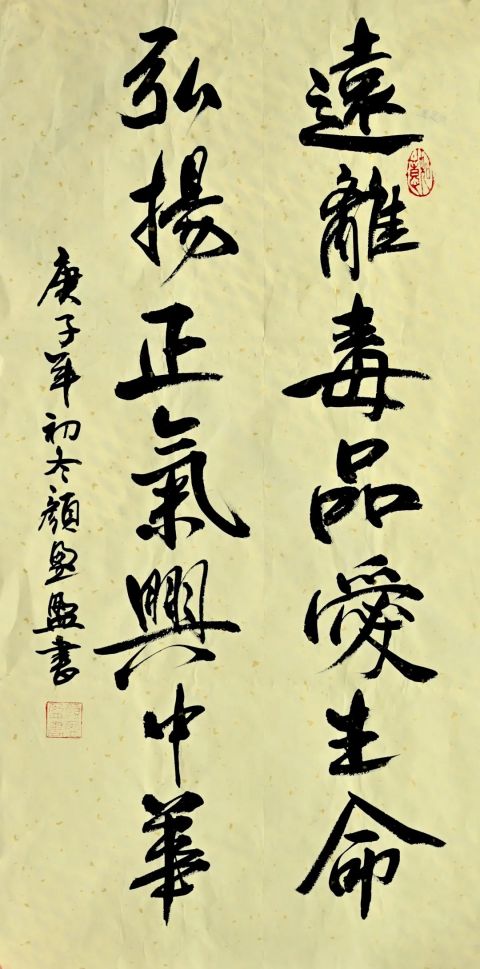 遠離毒品愛生命
弘揚正氣興中華
庚子年初冬顏盈盈書